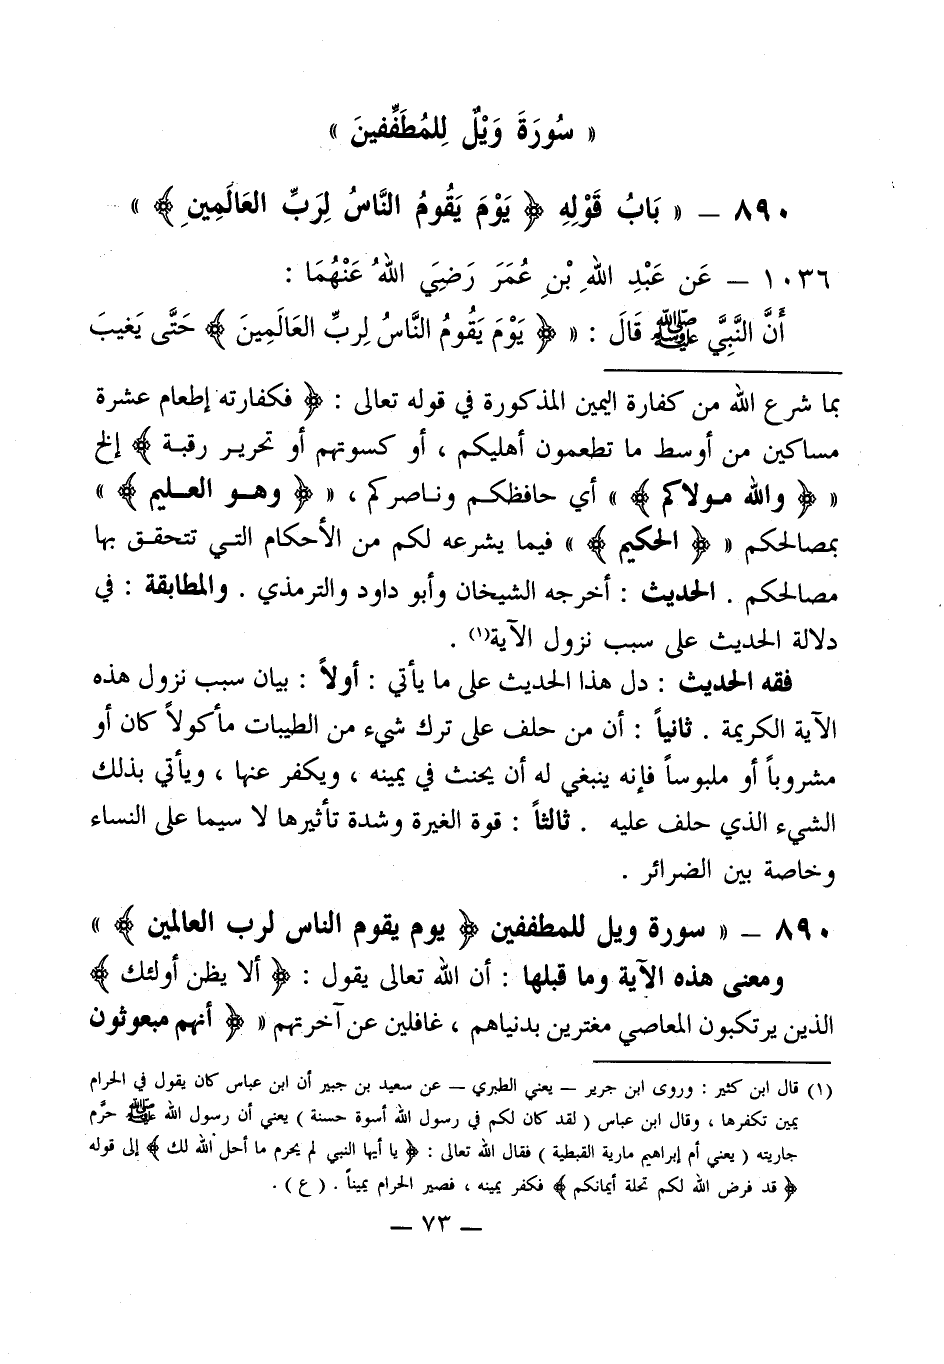 « سُورَةَ وَيْلٌ لِلمُطَفِّفينَ »
٨٩٠ ـ « بَابُ قَوْلِهِ ﴿ يَوْمَ يَقُومُ النَّاسُ لِرَبِّ العَالَمِينِ ﴾ »
١٠٣٦ ـ عَن عَبْدِ اللهِ بْنِ عُمَرَ رَضِيَ اللهُ عَنْهُمَا :
أَنَّ النَّبِيَّ ﷺ قَالَ : « ﴿ يَوْمَ يَقُومُ النَّاسُ لِربِّ العَالَمِينَ ﴾ حَتَّى يَغيبَ
بما شرع الله من كفارة اليمين المذكورة في قوله تعالى : ﴿ فكفارته إطعام عشرة
مساكين من أوسط ما تطعمون أهليكم ، أو كسوتهم أو تحرير رقبة ﴾ إلخ
« ﴿ والله مولاكم ﴾ » أي حافظكم وناصركم ، « ﴿ وهو العليم ﴾ »
بمصالحكم « ﴿ الحكيم ﴾ » فيما يشرعه لكم من الأحكام التي تتحقق بها
مصالحكم . الحديث : أخرجه الشيخان وأبو داود والترمذي . والمطابقة : في
دلالة الحديث على سبب نزول الآية(١) .
فقه الحديث : دل هذا الحديث على ما يأتي : أولاً : بيان سبب نزول هذه
الآية الكريمة . ثانياً : أن من حلف على ترك شيء من الطيبات مأكولاً كان أو
مشروباً أو ملبوساً فإنه ينبغي له أن يحنث في يمينه ، ويكفر عنها ، ويأتي بذلك
الشيء الذي حلف عليه . ثالثاً : قوة الغيرة وشدة تأثيرها لا سيما على النساء
وخاصة بين الضرائر .
٨٩٠ ـ « سورة ويل للمطففين ﴿ يوم يقوم الناس لرب العالمين ﴾ »
ومعنى هذه الآية وما قبلها : أن الله تعالى يقول : ﴿ ألا يظن أولئك ﴾
الذين يرتكبون المعاصي مغترين بدنياهم ، غافلين عن آخرتهم « ﴿ أنهم مبعوثون
(١) قال ابن كثير : وروى ابن جرير ـ يعني الطبري ـ عن سعيد بن جبير أن ابن عباس كان يقول في الحرام
يمين تكفرها ، وقال ابن عباس ( لقد كان لكم في رسول الله أسوة حسنة ) يعني أن رسول الله ﷺ حرَّم
جاريته ( يعني أم إبراهيم مارية القبطية ) فقال الله تعالى : ﴿ يا أيها النبي لم يحرم ما أحل الله لك ﴾ إلى قوله
﴿ قد فرض الله لكم تحلة أيمانكم ﴾ فكفر يمينه ، فصير الحرام يميناً . ( ع ) .
ـ ٧٣ ـ